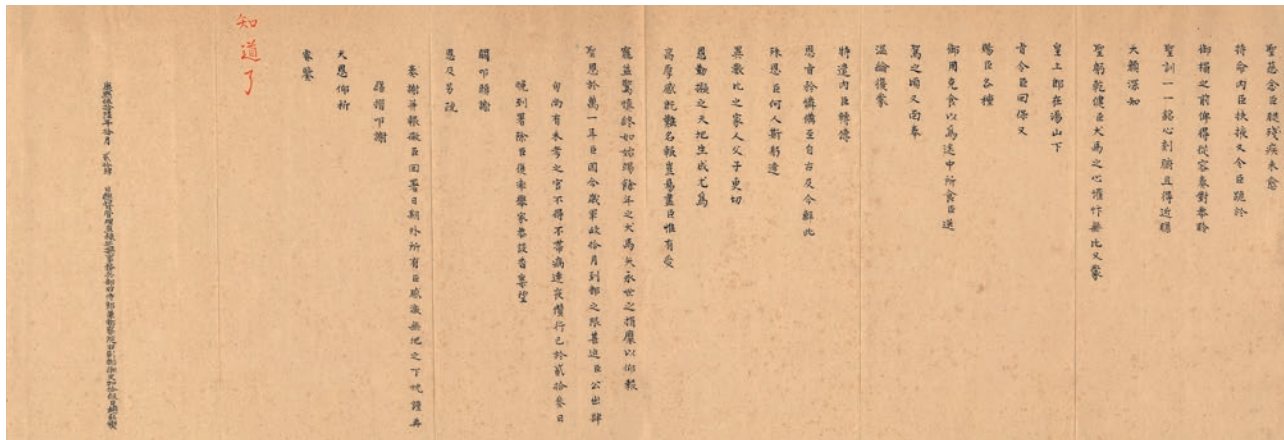 聖慈念臣腿殘疾未愈
特命內臣扶掖又令臣跪於
御榻之前俾得從容奏對恭聆
聖訓一一銘心刻腑且得近瞻
天顏深知
聖躬乾健臣犬馬之心懽忭無比又蒙
皇上即在湯山下
旨令臣回保又
賜臣各種
御用克食以為途中所食臣送
駕之頃又面奉
溫綸復蒙
特遣內臣轉傳
恩旨矜憐備至自古及今鮮此
殊恩臣何人斯躬逢
異數比之家人父子更切
恩勤擬之天地生成尤為
高厚感既難名報豈易盡臣惟有受
寵益驚懍終如始竭餘年之犬馬矢永世之捐糜以仰報
聖恩於萬一耳臣因今歲軍政拾月到部之限甚迫臣公出肆
旬尚有未考之官不得不帶病連夜儹行已於貳拾叁日
晚到署除臣復率舉家恭設香案望
闕叩頭謝
恩及另疏
奏謝并報微臣回署日期外所有臣感激無地之下忱謹再
繕摺叩謝
天恩仰祈
睿鑒
知道了
康熙伍拾陸年拾月 貳拾肆 日總督管理直隸巡撫事務兵部右侍郎兼都察院右副都御史加拾級臣趙弘燮